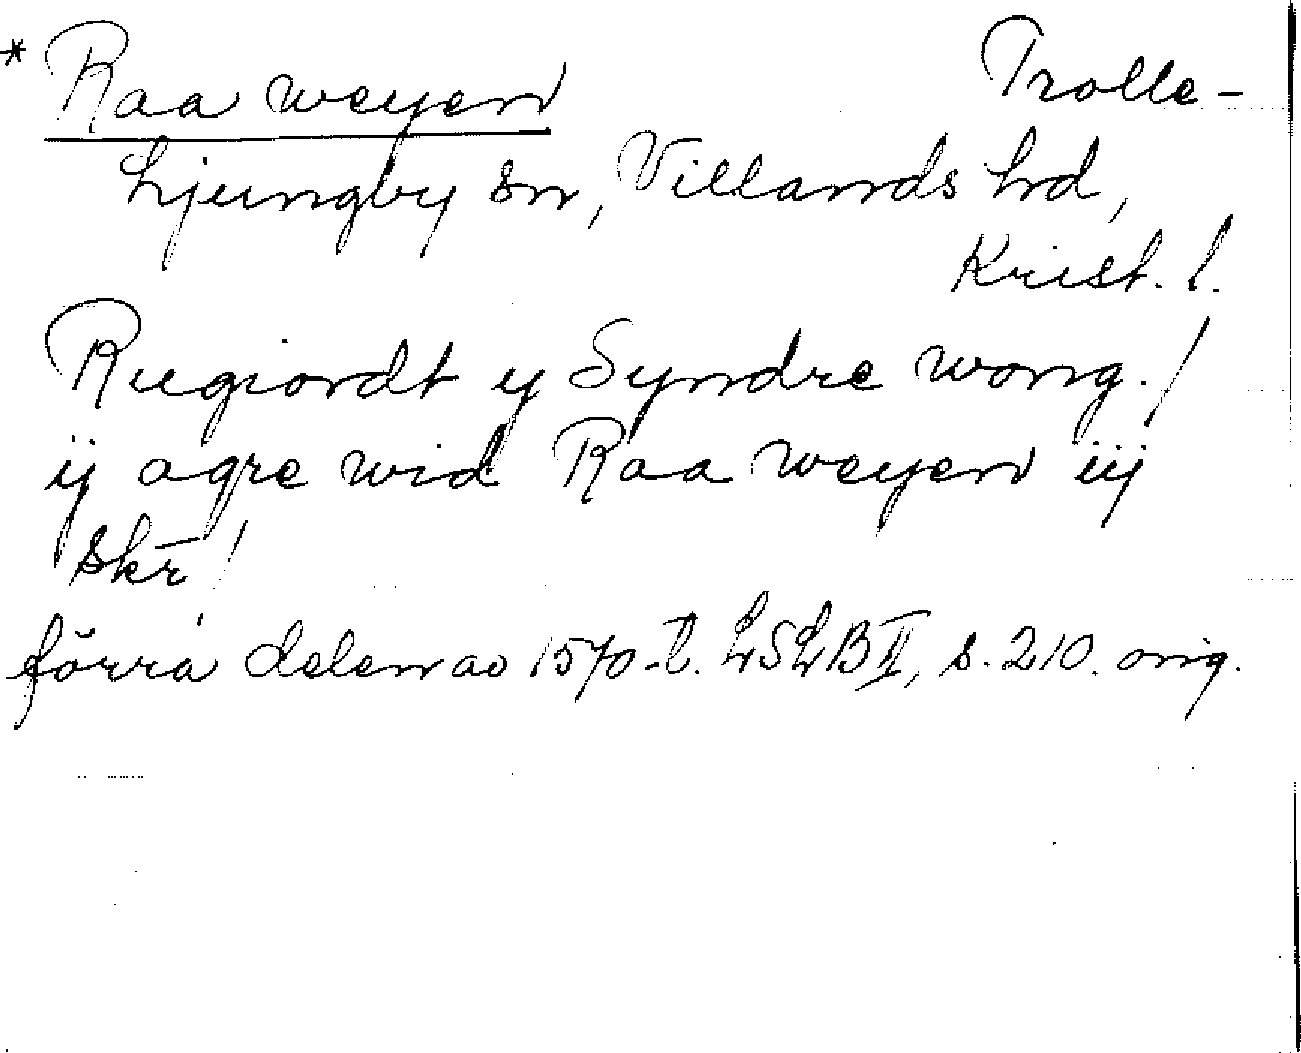 * Raa weyen Trolle-
Ljungby sn, Villands hd,
Krist. l.
Rugiordt y Syndre wong. /
ij agre wid Raa weyen iij
skr /
förra delen av 1570-t. LSLB II, s. 210. orig.